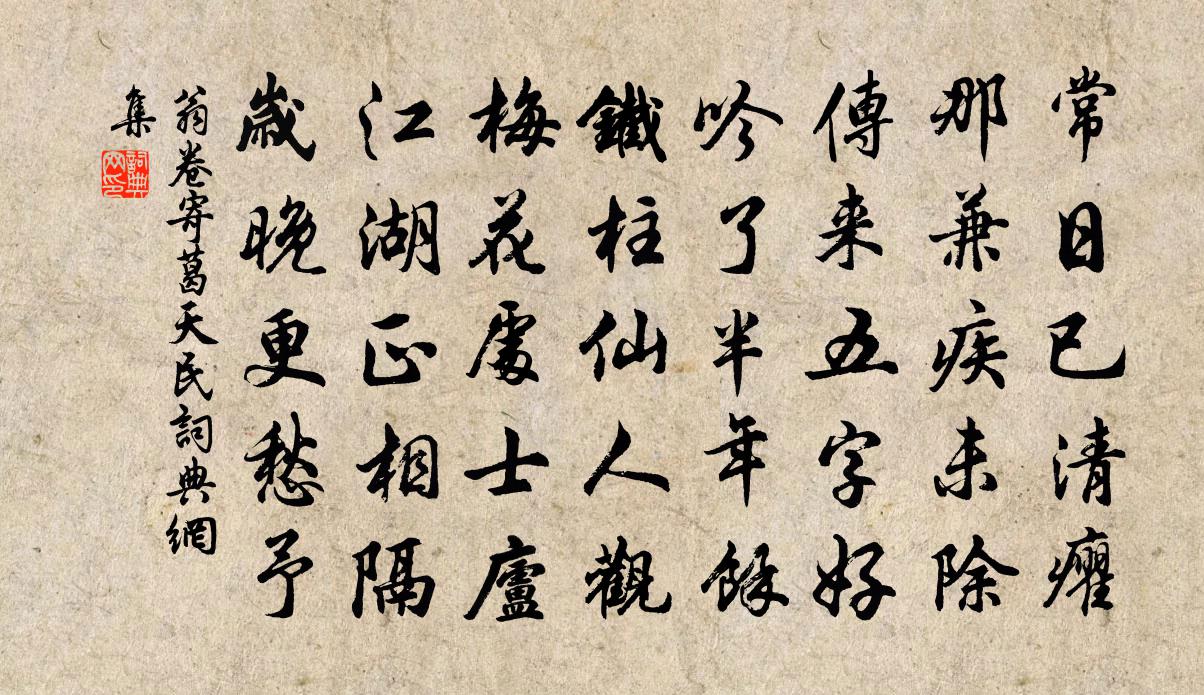 常日已清癯
那兼疾未除
傳来五字好
吟了半年餘
鐵柱仙人觀
梅花處士廬
江湖正相隔
歲晚更愁予
翁卷寄葛天民詞典網
集
詞典
网印